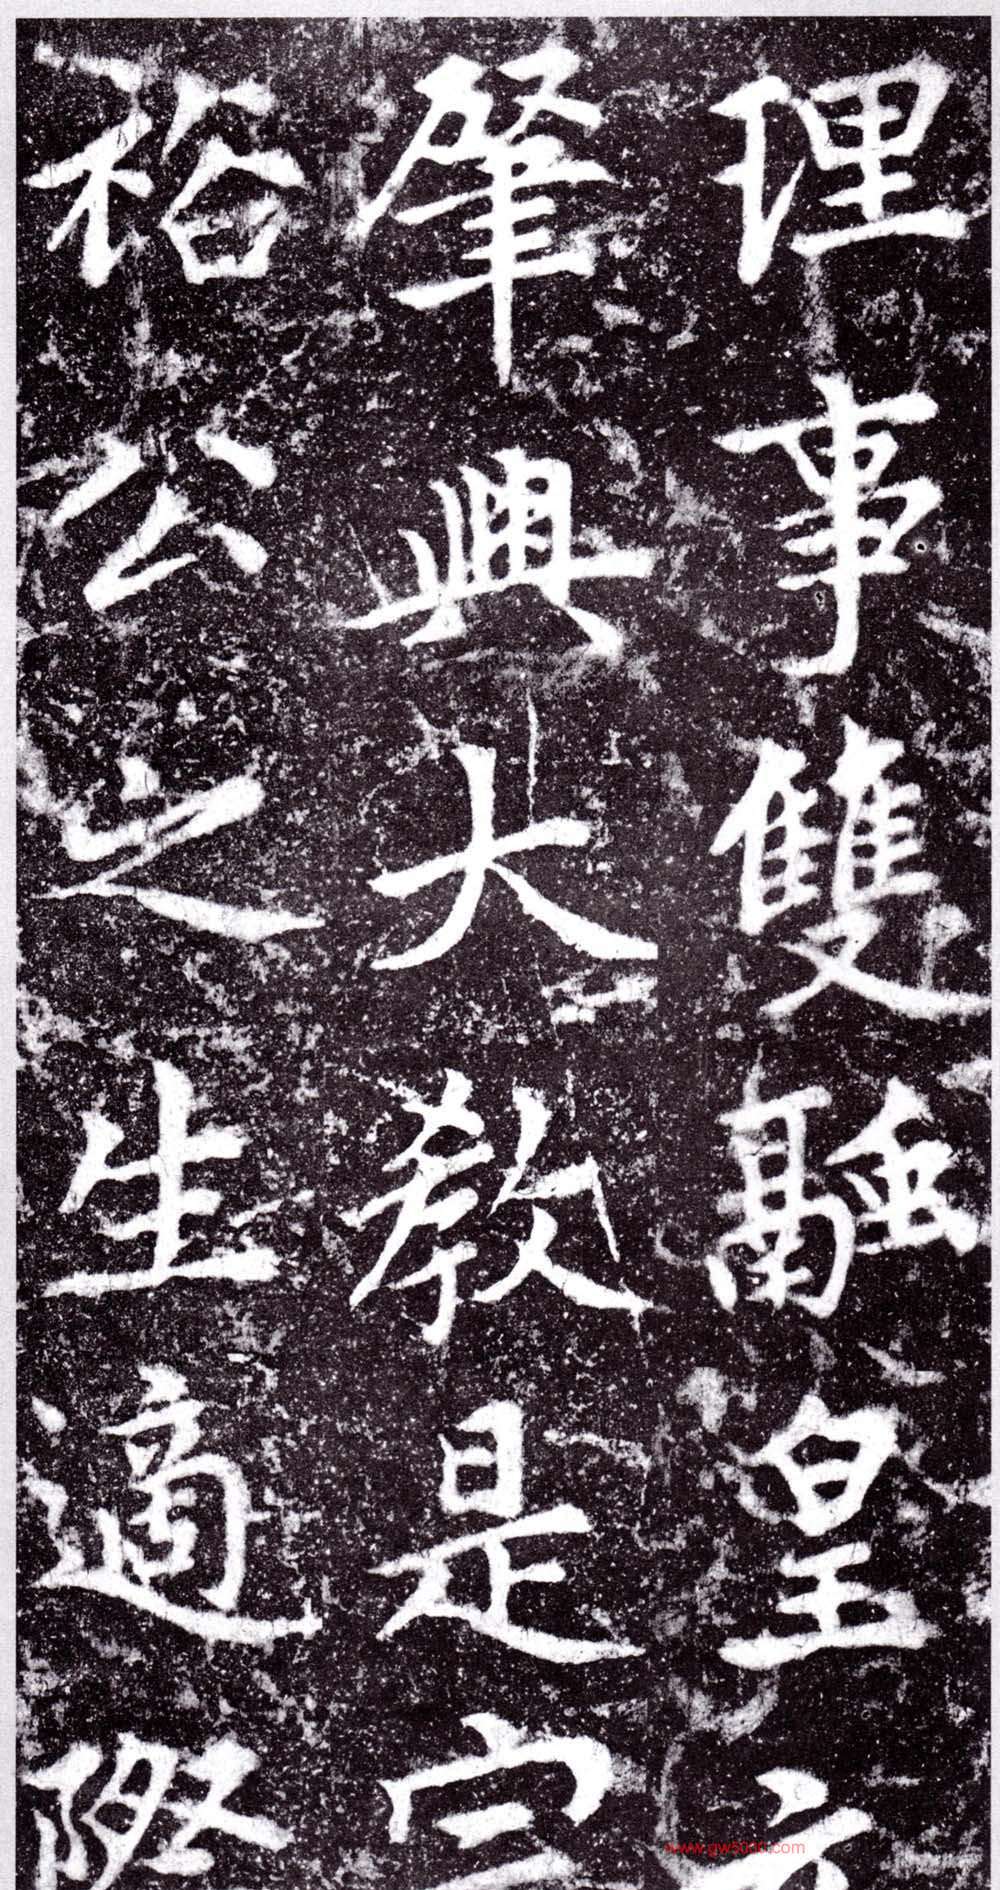 理事雙融皇
肇興大教是
裕公之生適際
www.gw5000.com